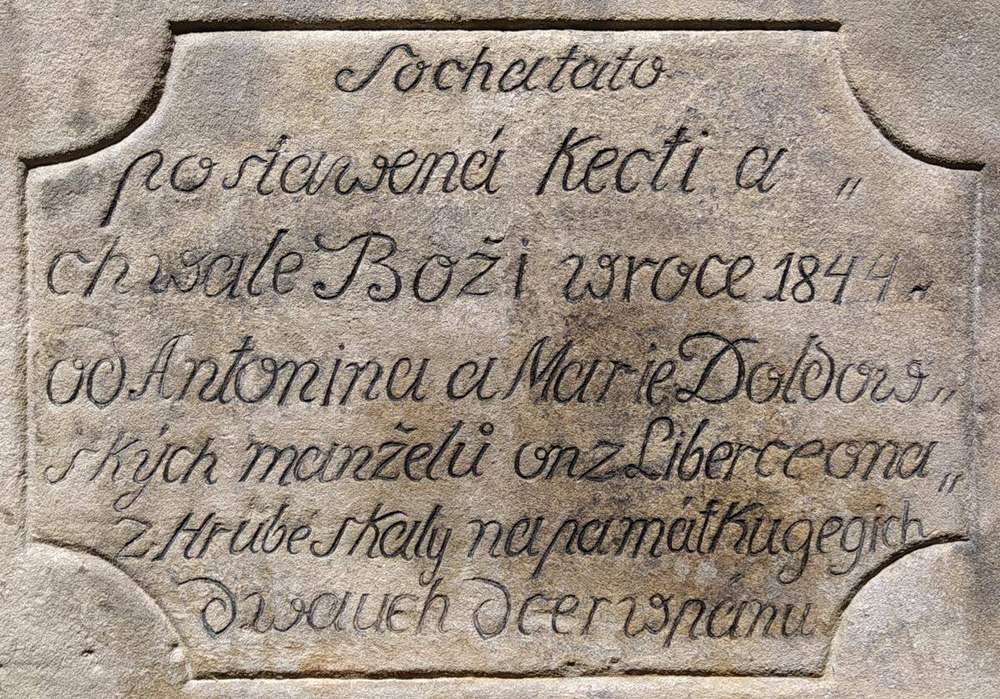 Sochatato
postawená kecti a „
chwale Boži wroce 1844 „
od Antonina a Marie Doldow „
ských manželů onzLiberceona „
z Hrubeskaly napamátkugegich
dwauch dcer wpánu